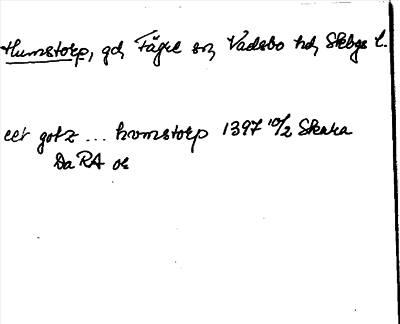 Humstorp, gd, Fägre sn, Vadsbo hd, Skbgs l.
ett gotz ... homstorp 1397 10/2 Skara
Da RA or